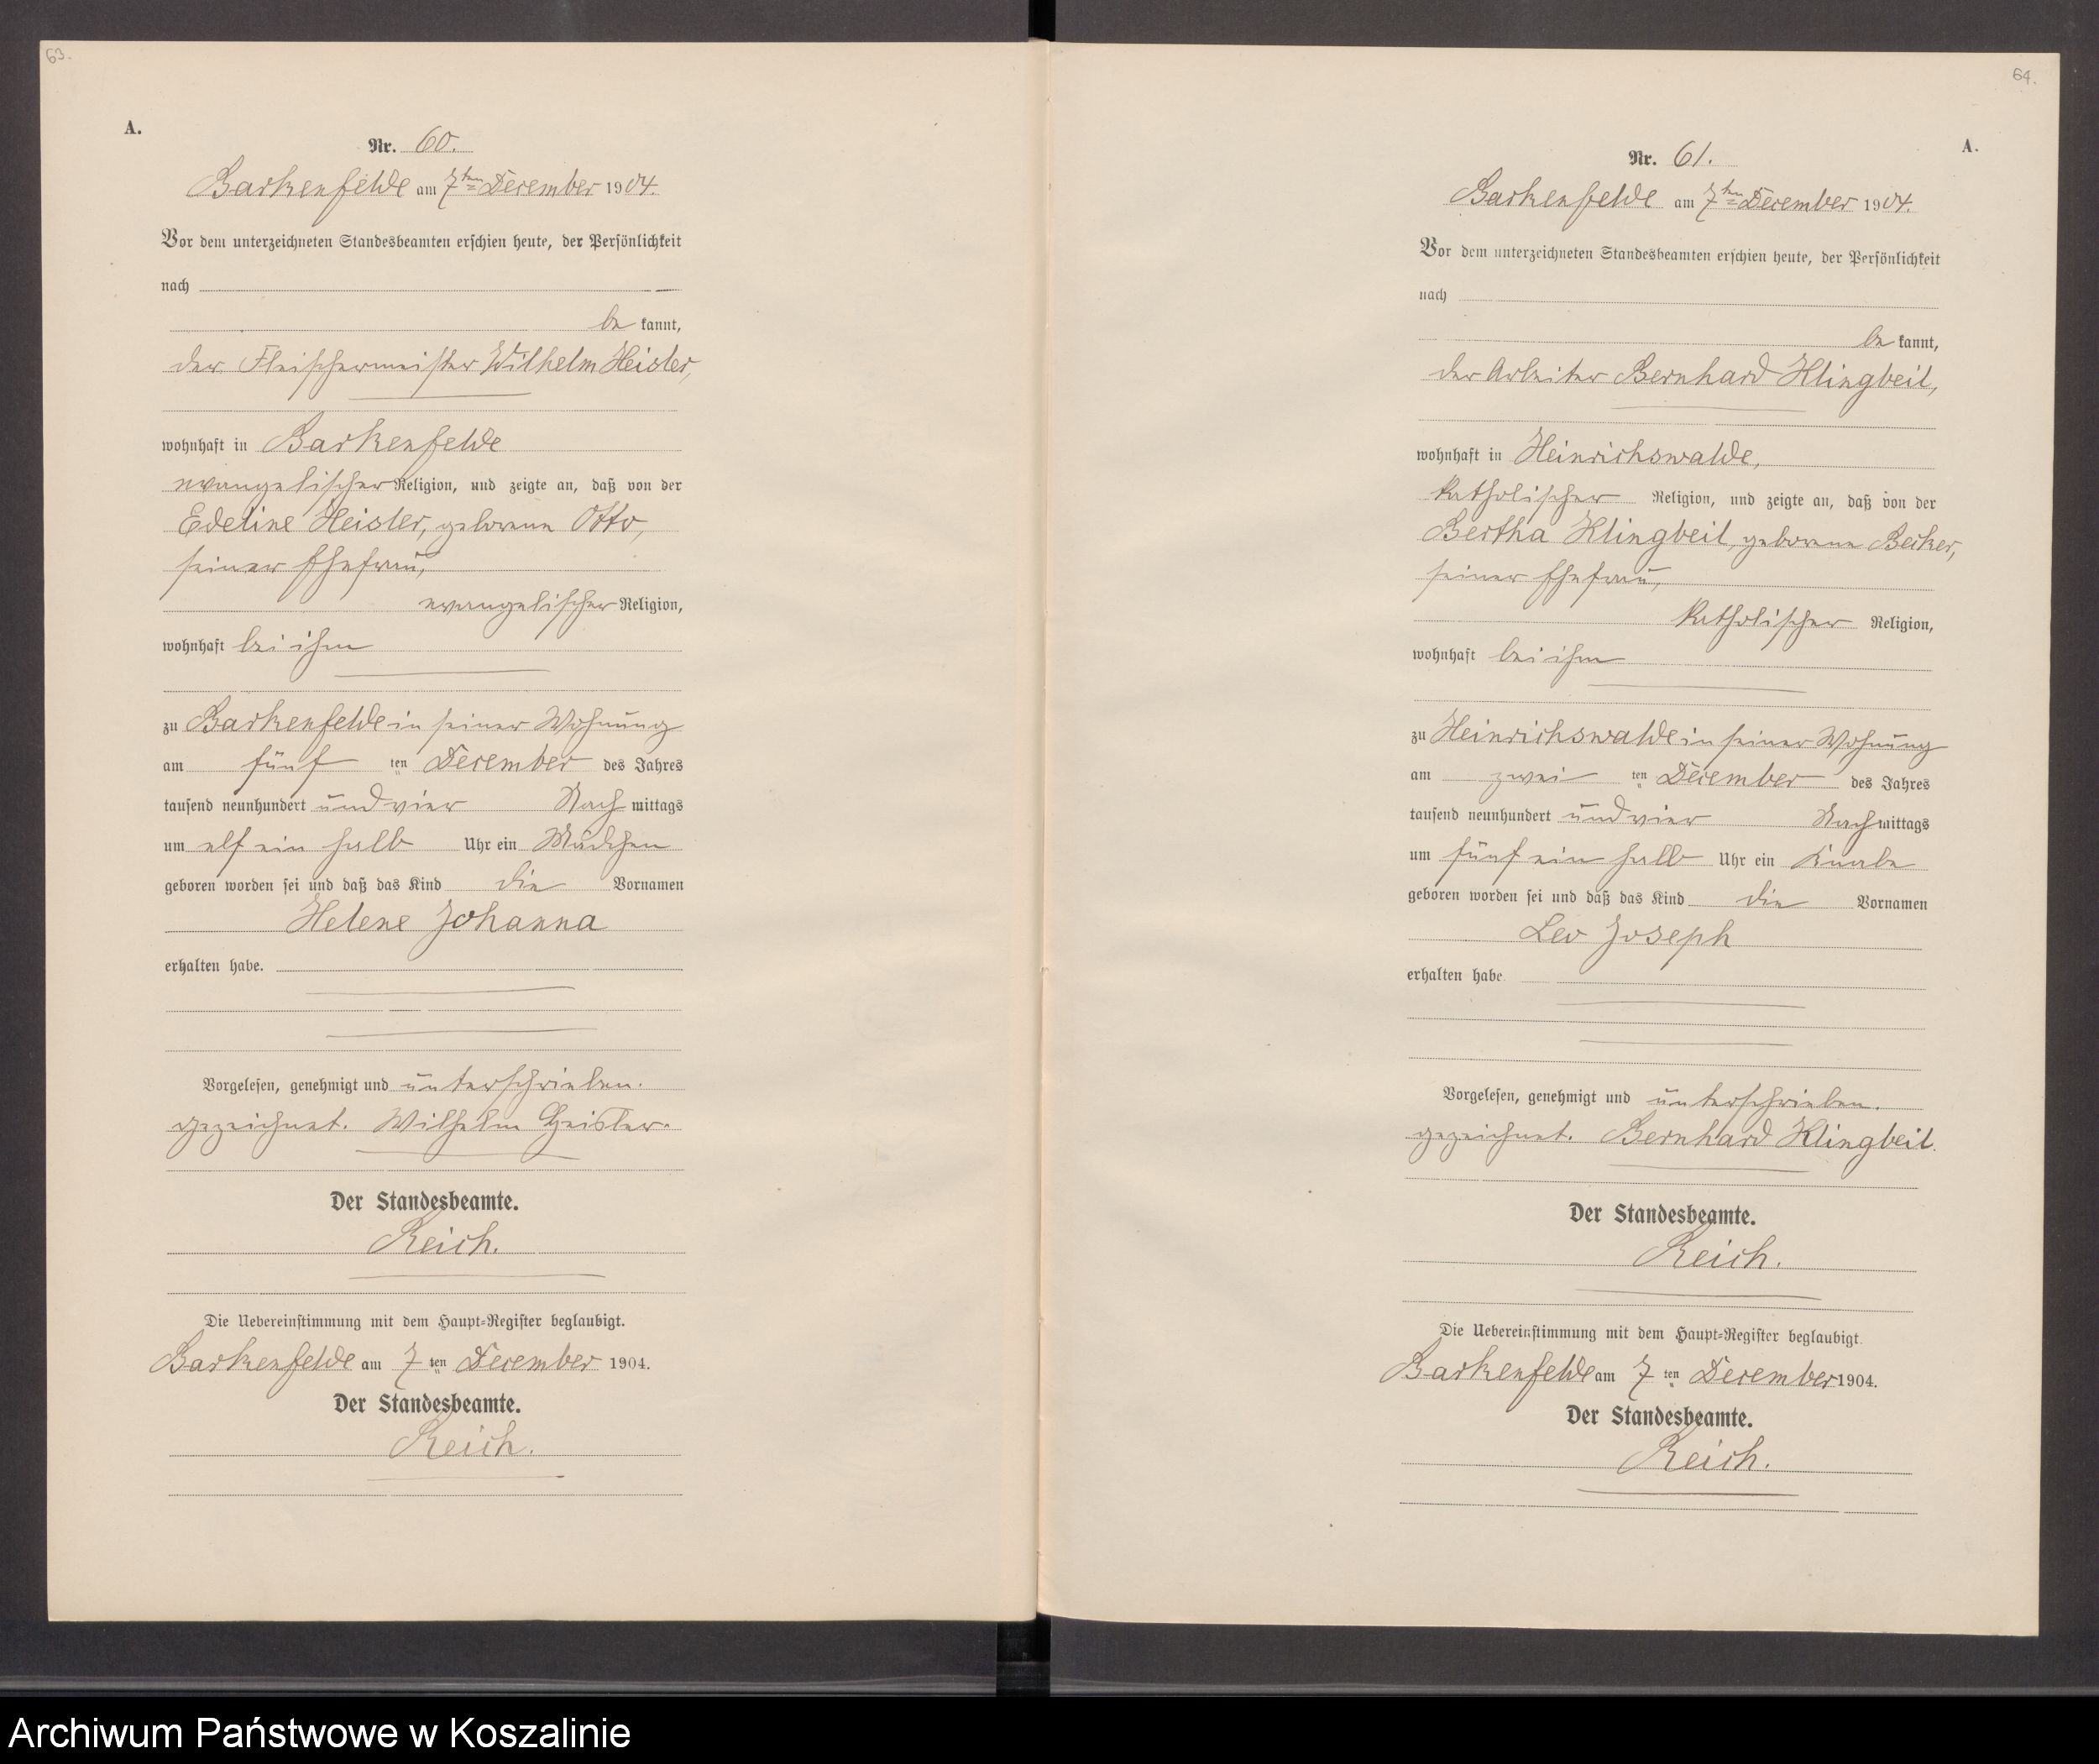 63.
A.
Nr. 60.
Barkenfelde am 7ten December 1904.
Vor dem unterzeichneten Standesbeamten erschien heute, der Persönlichkeit
nach
be kannt,
der Fleischermeister Wilhelm Heisler,
wohnhaft in Barkenfelde
evangelischer Religion, und zeigte an, daß von der
Edeline Heisler, geborene Otto,
seiner Ehefrau,
evangelischer Religion,
wohnhaft bei ihm
zu Barkenfelde in seiner Wohnung
am fünf ten December des Jahres
tausend neunhundert und vier Nach mittags
um elf ein halb Uhr ein Mädchen
geboren worden sei und daß das Kind die Vornamen
Helene Johanna
erhalten habe.
Vorgelesen, genehmigt und unterschrieben.
gezeichnet. Wilhelm Heisler.
Der Standesbeamte.
Reich.
Die Uebereinstimmung mit dem Haupt-Register beglaubigt.
Barkenfelde am 7 ten December 1904.
Der Standesbeamte.
Reich.
64.
A.
Nr. 61.
Barkenfelde am 7ten December 1904.
Vor dem unterzeichneten Standesbeamten erschien heute, der Persönlichkeit
nach
be kannt,
der Arbeiter Bernhard Klingbeil,
wohnhaft in Heinrichswalde,
katholischer Religion, und zeigte an, daß von der
Bertha Klingbeil, geborene Becker,
seiner Ehefrau,
katholischer Religion,
wohnhaft bei ihm
zu Heinrichswalde in seiner Wohnung
am zwei ten December des Jahres
tausend neunhundert und vier Nach mittags
um fünf ein halb Uhr ein Knabe
geboren worden sei und daß das Kind die Vornamen
Leo Joseph
erhalten habe
Vorgelesen, genehmigt und unterschrieben.
gezeichnet. Bernhard Klingbeil.
Der Standesbeamte.
Reich.
Die Uebereinstimmung mit dem Haupt-Register beglaubigt.
Barkenfelde am 7 ten December 1904.
Der Standesbeamte.
Reich.
Archiwum Państwowe w Koszalinie